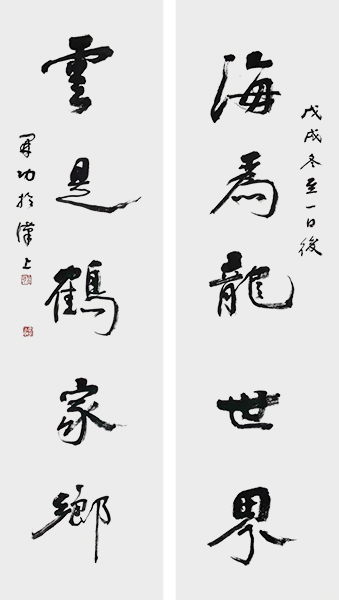 戊戌冬至一日後
海為龍世界
雲是鶴家鄉
功於漢上